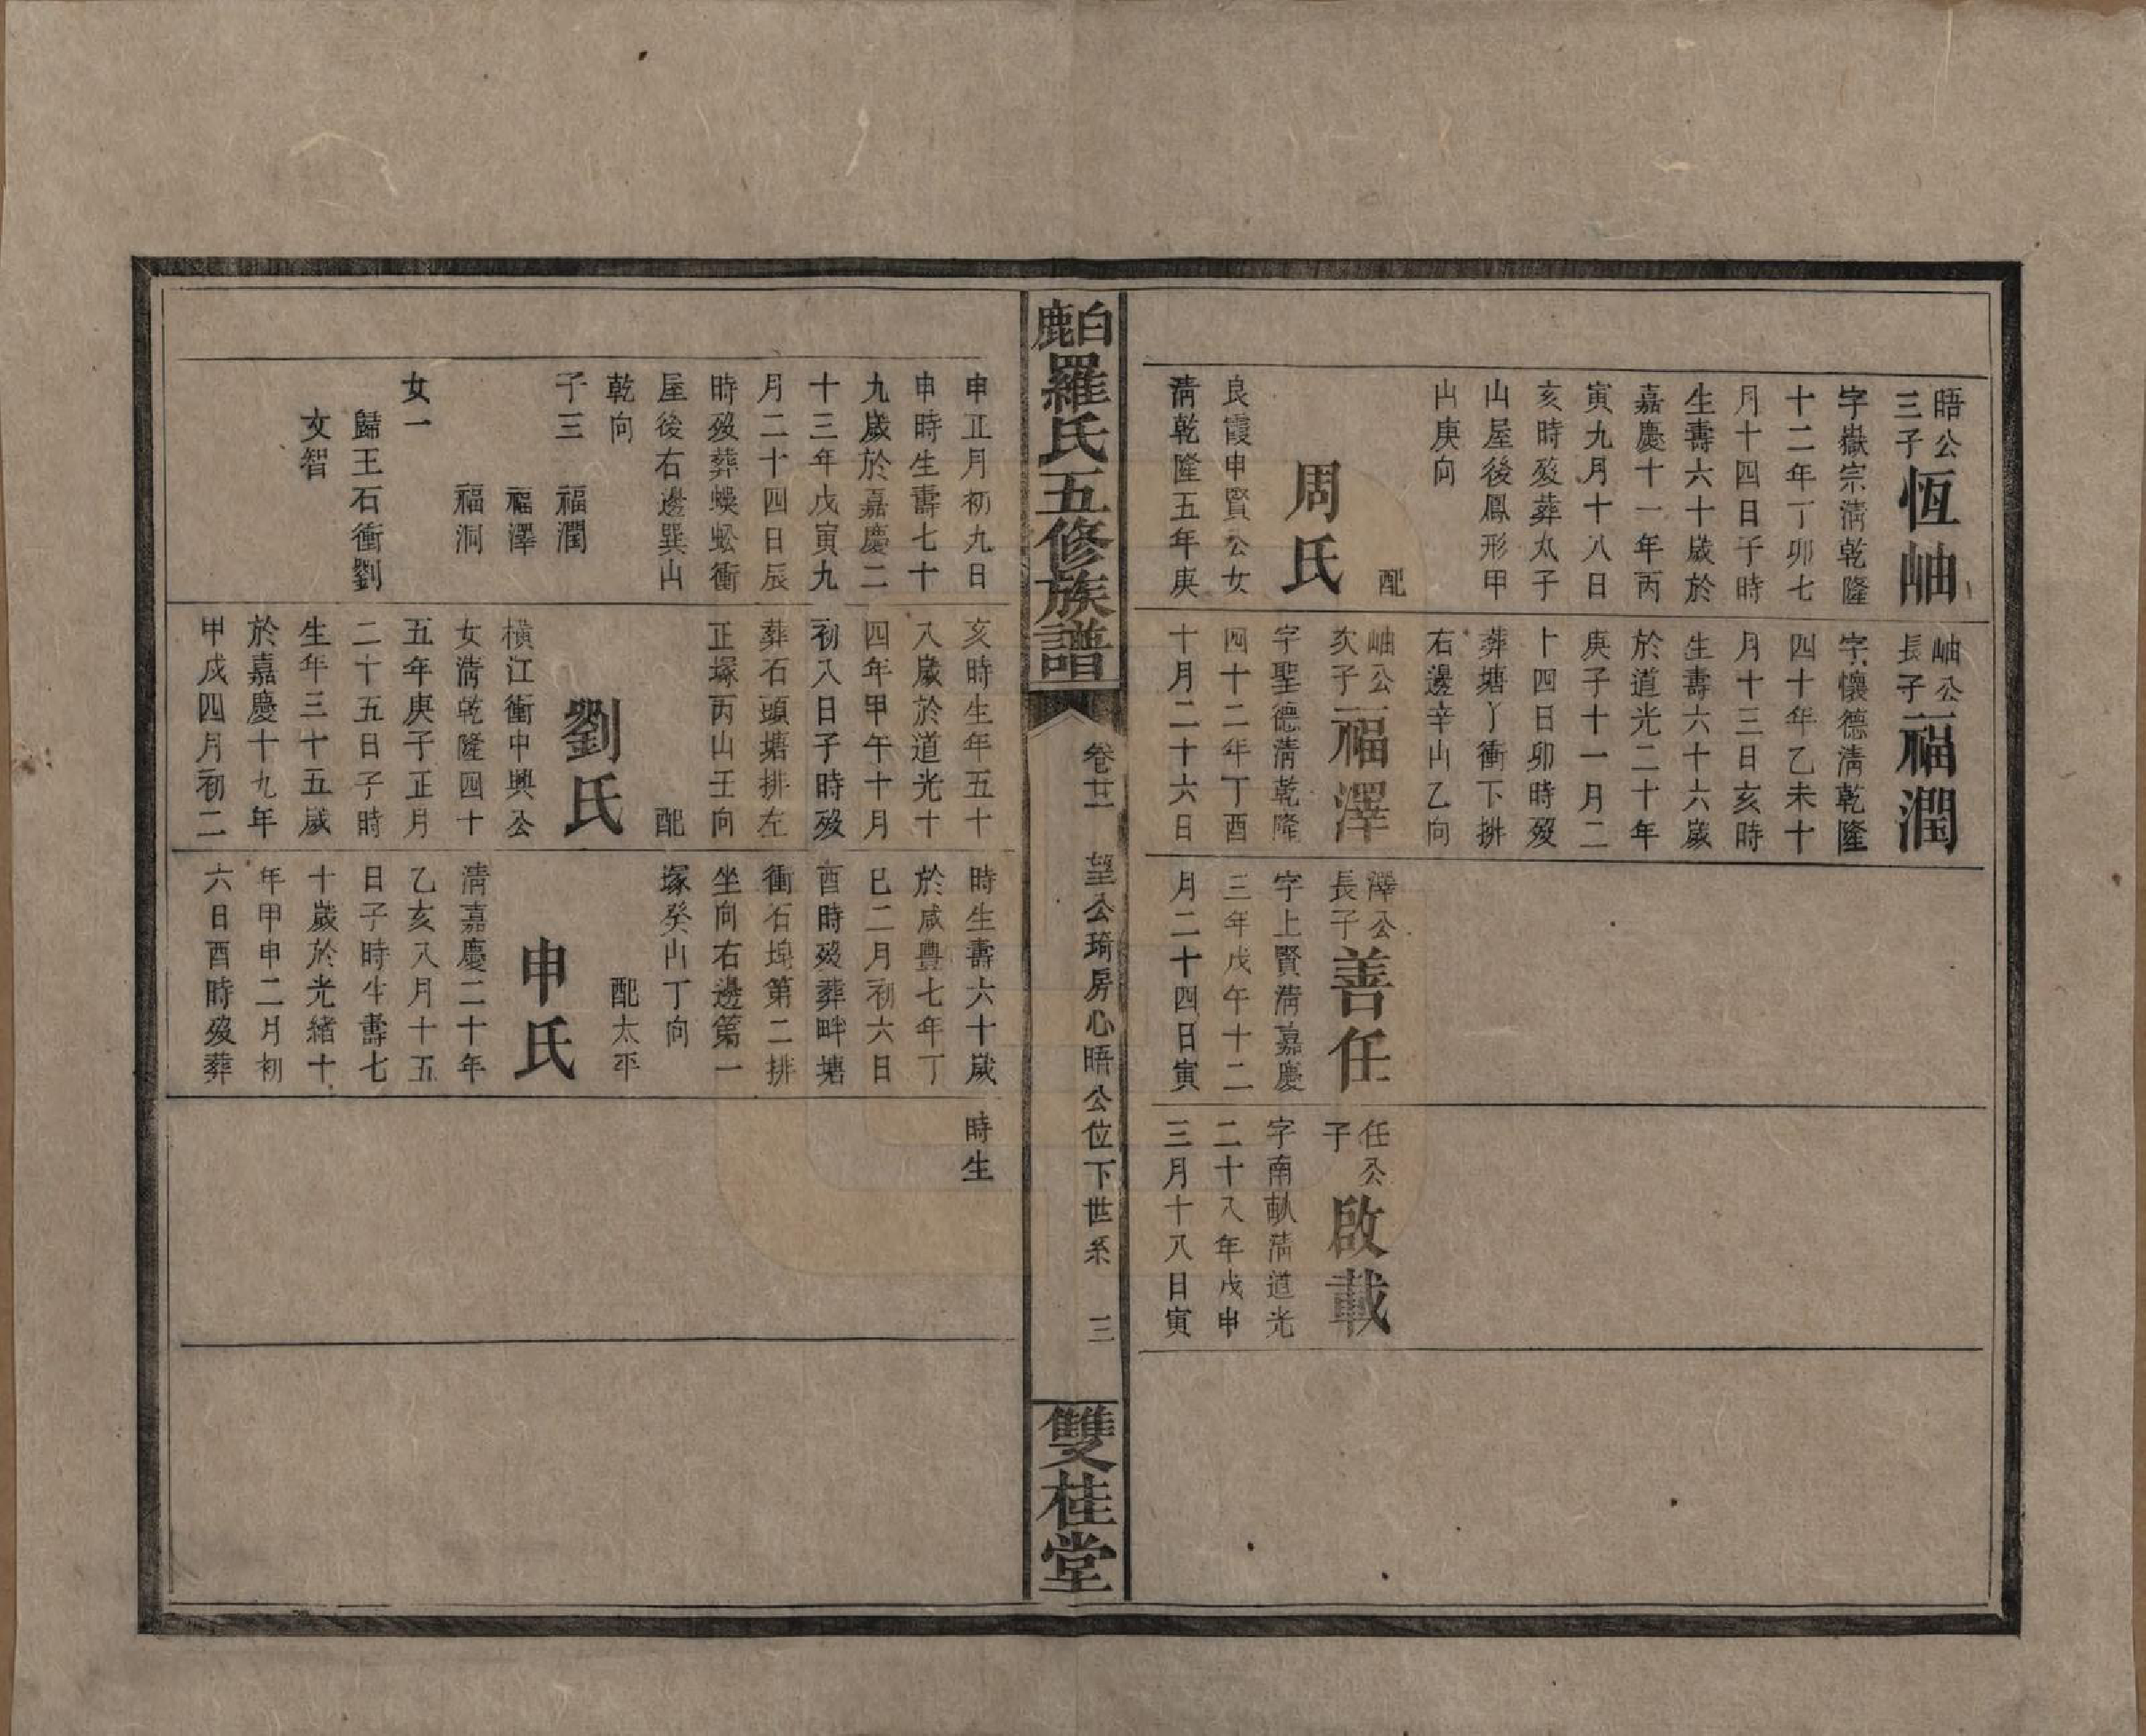 晤公
三子
恆岫
字嶽宗淸乾隆
十二年丁卯七
月十四日子時
生壽六十歲於
嘉慶十一年丙
寅九月十八日
亥時歿葬太子
山屋後鳳形甲
山庚向
配
周氏
良霞申賢公女
淸乾隆五年庚
岫公
長子
福潤
字懷德淸乾隆
四十年乙未十
月十三日亥時
生壽六十六歲
於道光二十年
庚子十一月二
十四日卯時歿
葬塘丫衝下排
右邊辛山乙向
岫公
次子
福澤
字聖德淸乾隆
四十二年丁酉
十月二十六日
澤公
長子
善任
字上賢淸嘉慶
三年戊午十二
月二十四日寅
任公
子
啟載
字南畝淸道光
二十八年戊申
三月十八日寅
白鹿羅氏五修族譜
卷廿一 望公琦房心晤公位下世系 三
雙桂堂
申正月初九日
申時生壽七十
九歲於嘉慶二
十三年戊寅九
月二十四日辰
時歿葬蠑蚣衝
屋後右邊巽山
乾向
子三 福潤
福澤
福洞
女一
歸王石衝劉
文智
亥時生年五十
八歲於道光十
四年甲午十月
初八日子時歿
葬石頭塘排左
正塚丙山壬向
配
劉氏
橫江衝中興公
女淸乾隆四十
五年庚子正月
二十五日子時
生年三十五歲
於嘉慶十九年
甲戌四月初二
時生壽六十歲
於咸豐七年丁
巳二月初六日
酉時歿葬畔塘
衝石塢第二排
坐向右邊第一
塚癸山丁向
配太平
申氏
淸嘉慶二十年
乙亥八月十五
日子時生壽七
十歲於光緒十
年甲申二月初
六日酉時歿葬
時生